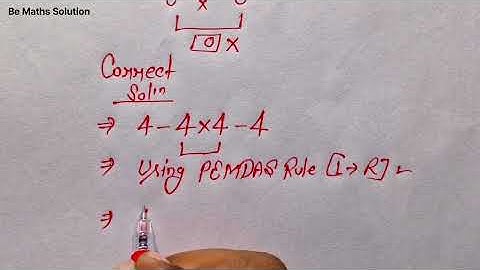 Be Maths Solution
0 x 0
0 x
Correct
Soln
⇒ 4 - 4 x 4 - 4
⇒ Using PEMDAS Rule [L → R]
⇒